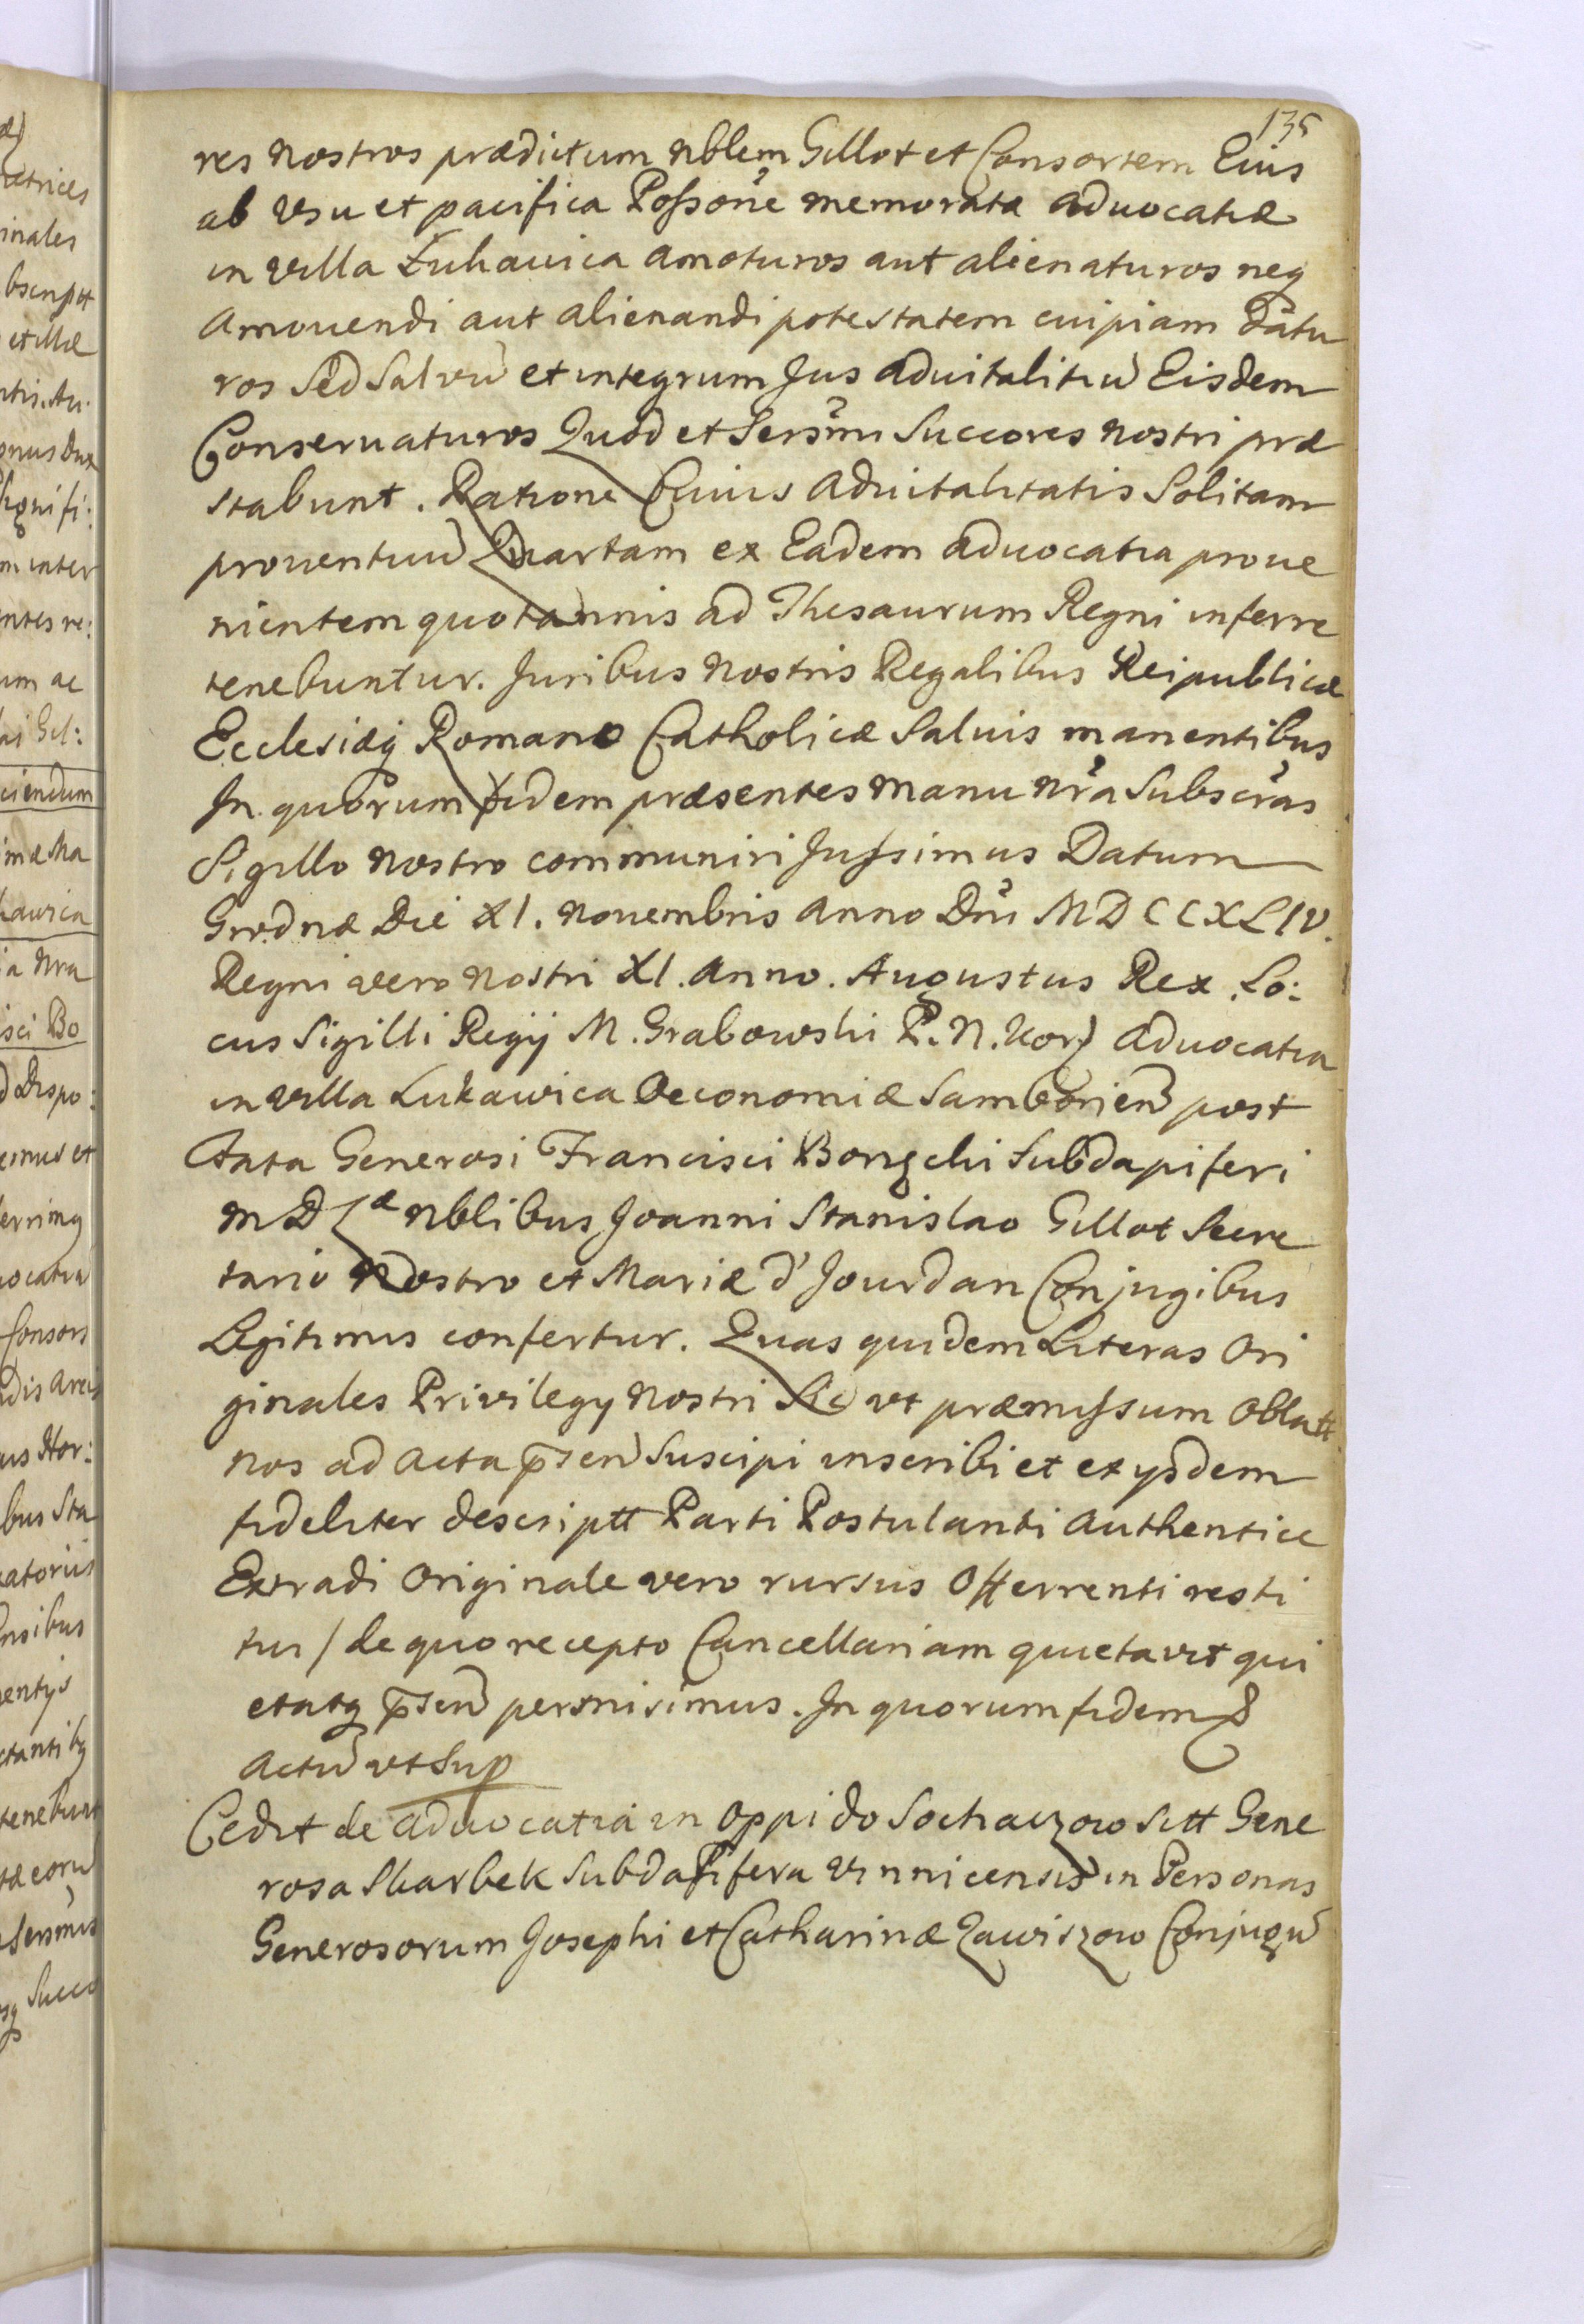 135
res nostros prædictum nblem Gillot et Consortem Eius
ab vsu et pacifica Possone memoratæ aduocatiæ
in villa Łukawica amoturos aut alienaturos neq
amouendi aut alienandi potestatem cuipiam datu
ros Sed Salvu et integrum Jus aduitalitiu Eisdem
Conseruaturos Quod et Sersmi Succores nostri præ
stabunt. Ratione Cuius aduitalitatis Solitam
prouentuu Quartam ex Eadem aduocatia proue
nientem quotannis ad Thesaurum Regni inferre
tenebuntur. Juribus nostris Regalibus Reipublicæ
Ecclesiæq Romanæ Catholicæ Saluis manentibus
In quorum fidem præsentes manu nra Subscras
Sigillo nostro communiri Jussimus Datum
Grodnæ Die XI. nouembris anno Dni MDCCXLIV.
Regni vero nostri XI. anno. Augustus Rex. Lo:
cus Sigilli Regij M. Grabowski P. N. Kor) aduocatia
in villa Lukawica Oeconomiæ Samborien post
fata Generosi Francisci Bonęcki Subdapiferi
M D L æ nblibus Joanni Stanislao Gillot Secre
tario nostro et Mariæ d'Jourdan Conjugibus
Legitimis confertur. Quas quidem Literas Ori
ginales Privilegy nostri Sic vt præmissum oblatt
nos ad acta pñsen Suscipi inscribi et ex ysdem
fideliter descriptt Parti Postulanti authentice
Extradi Originale vero rursus Offerrenti resti
tui / de quo recepto Cancellariam quietavit qui
etatq pñsen permisimus. In quorum fidem &
actu vt Sup
Cedit de aduocatia in oppido Sochaczow Sitt Gene
rosa Skarbek Subdapifera vinnicensis in Personas
Generosorum Josephi et Catharinæ Zawiszow Conjugu